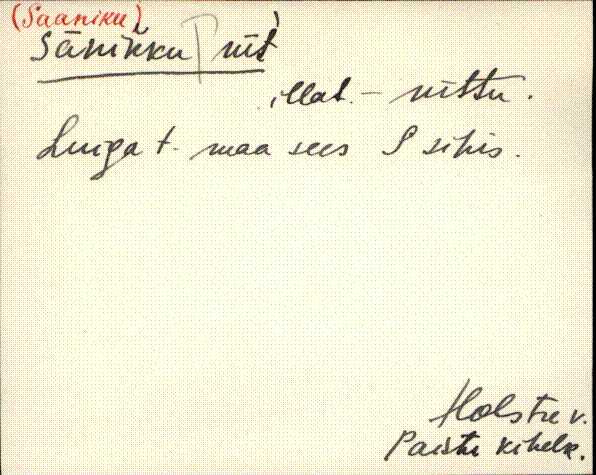 (Saaniku)
Sāniḱku nīt́
illat. – nīttu.
Luiga t. maa sees S sihis.
Holstre v.
Paistu kihelk.